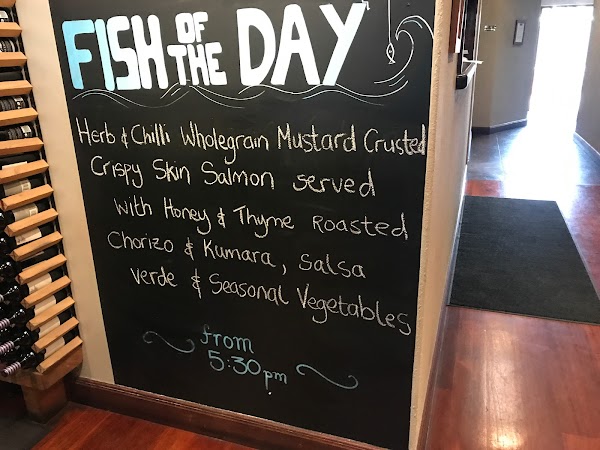 FISH OF THE DAY
Herb & Chilli Wholegrain Mustard Crusted
Crispy Skin Salmon served
with Honey & Thyme Roasted
Chorizo & Kumara, Salsa
Verde & Seasonal Vegetables
from
5:30pm